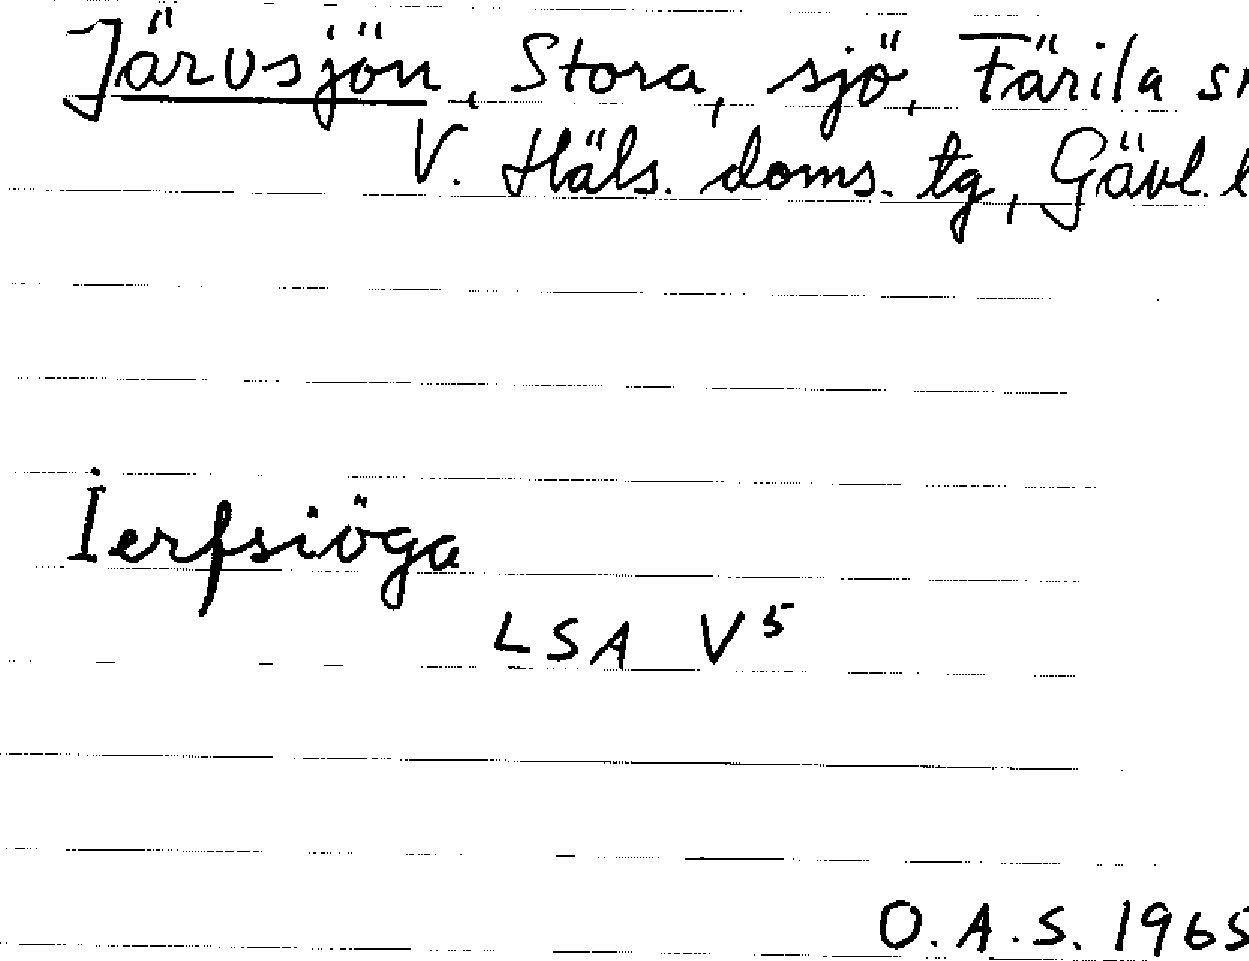 Järvsjön, Stora, sjö, Färila sn
V. Häls. doms. tg, Gävl. l
Ierfsiöga
LSA V5
O.A.S. 1965